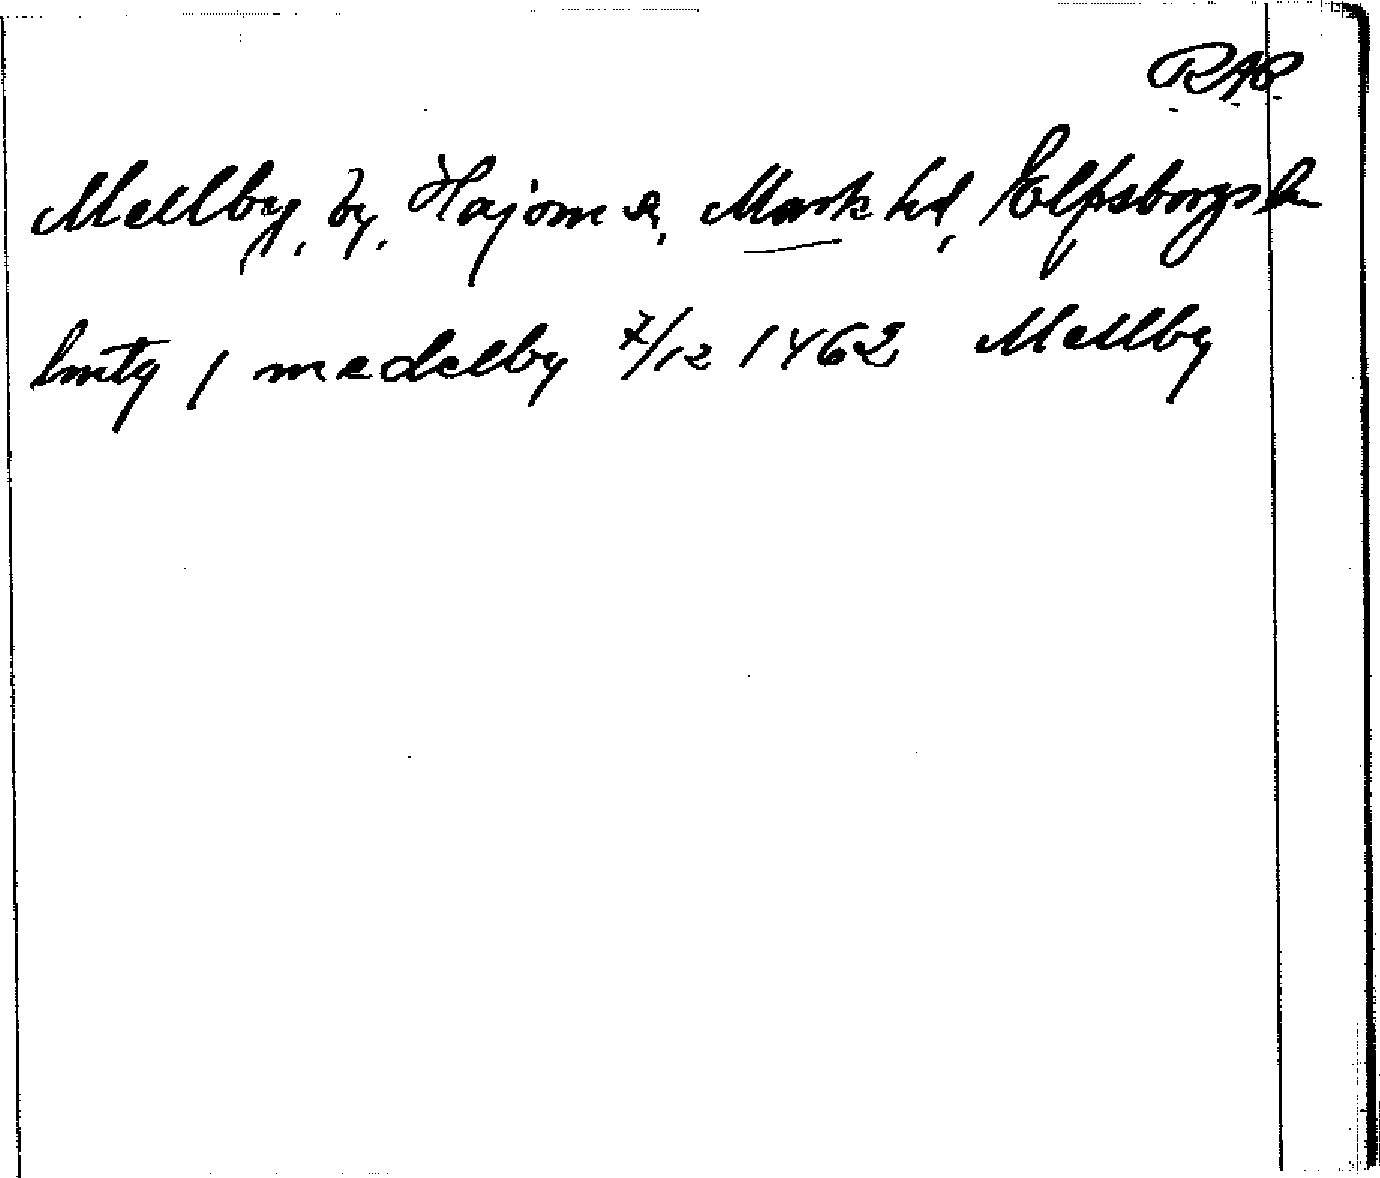 RAP
Mellby, by, Hajom sn, Mark hd, Elfsborgs ln
hmtg / medelby 7/12 1462 Mellby